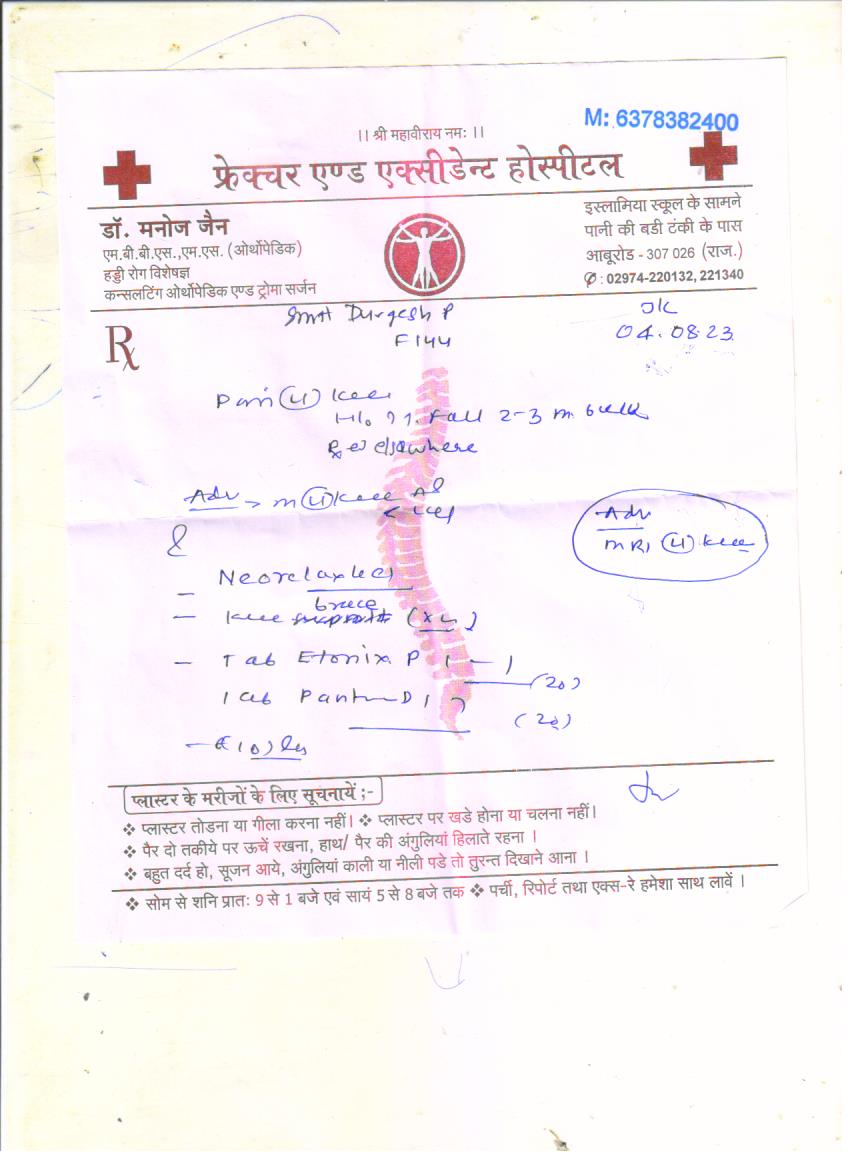 M: 6378382400
।। श्री महावीराय नमः ।।
फ्रेक्चर एण्ड एक्सीडेन्ट होस्पीटल
डॉ. मनोज जैन
एम.बी.बी.एस.,एम.एस. (ओर्थोपेडिक)
हड्डी रोग विशेषज्ञ
कन्सलटिंग ओर्थोपेडिक एण्ड ट्रोमा सर्जन
इस्लामिया स्कूल के सामने
पानी की बडी टंकी के पास
आबूरोड - 307 026 (राज.)
✆ : 02974-220132, 221340
Rx
Smt Durgesh P
F144
04.08.23
Pain (L) knee
H/o Fall 2-3 m back
Rx elsewhere
Adv (L) knee AP
Lat
Adv
MRI (L) knee
&
- Neorelax
brace
- knee
- Tab Etonix P 1 - 1
(20)
Tab D 1
(20)
प्लास्टर के मरीजों के लिए सूचनायें ;-
❖ प्लास्टर तोडना या गीला करना नहीं। ❖ प्लास्टर पर खडे होना या चलना नहीं।
❖ पैर दो तकीये पर ऊचें रखना, हाथ/ पैर की अंगुलियां हिलाते रहना ।
❖ बहुत दर्द हो, सूजन आये, अंगुलियां काली या नीली पडे तो तुरन्त दिखाने आना ।
❖ सोम से शनि प्रातः 9 से 1 बजे एवं सायं 5 से 8 बजे तक ❖ पर्ची, रिपोर्ट तथा एक्स-रे हमेशा साथ लावें ।